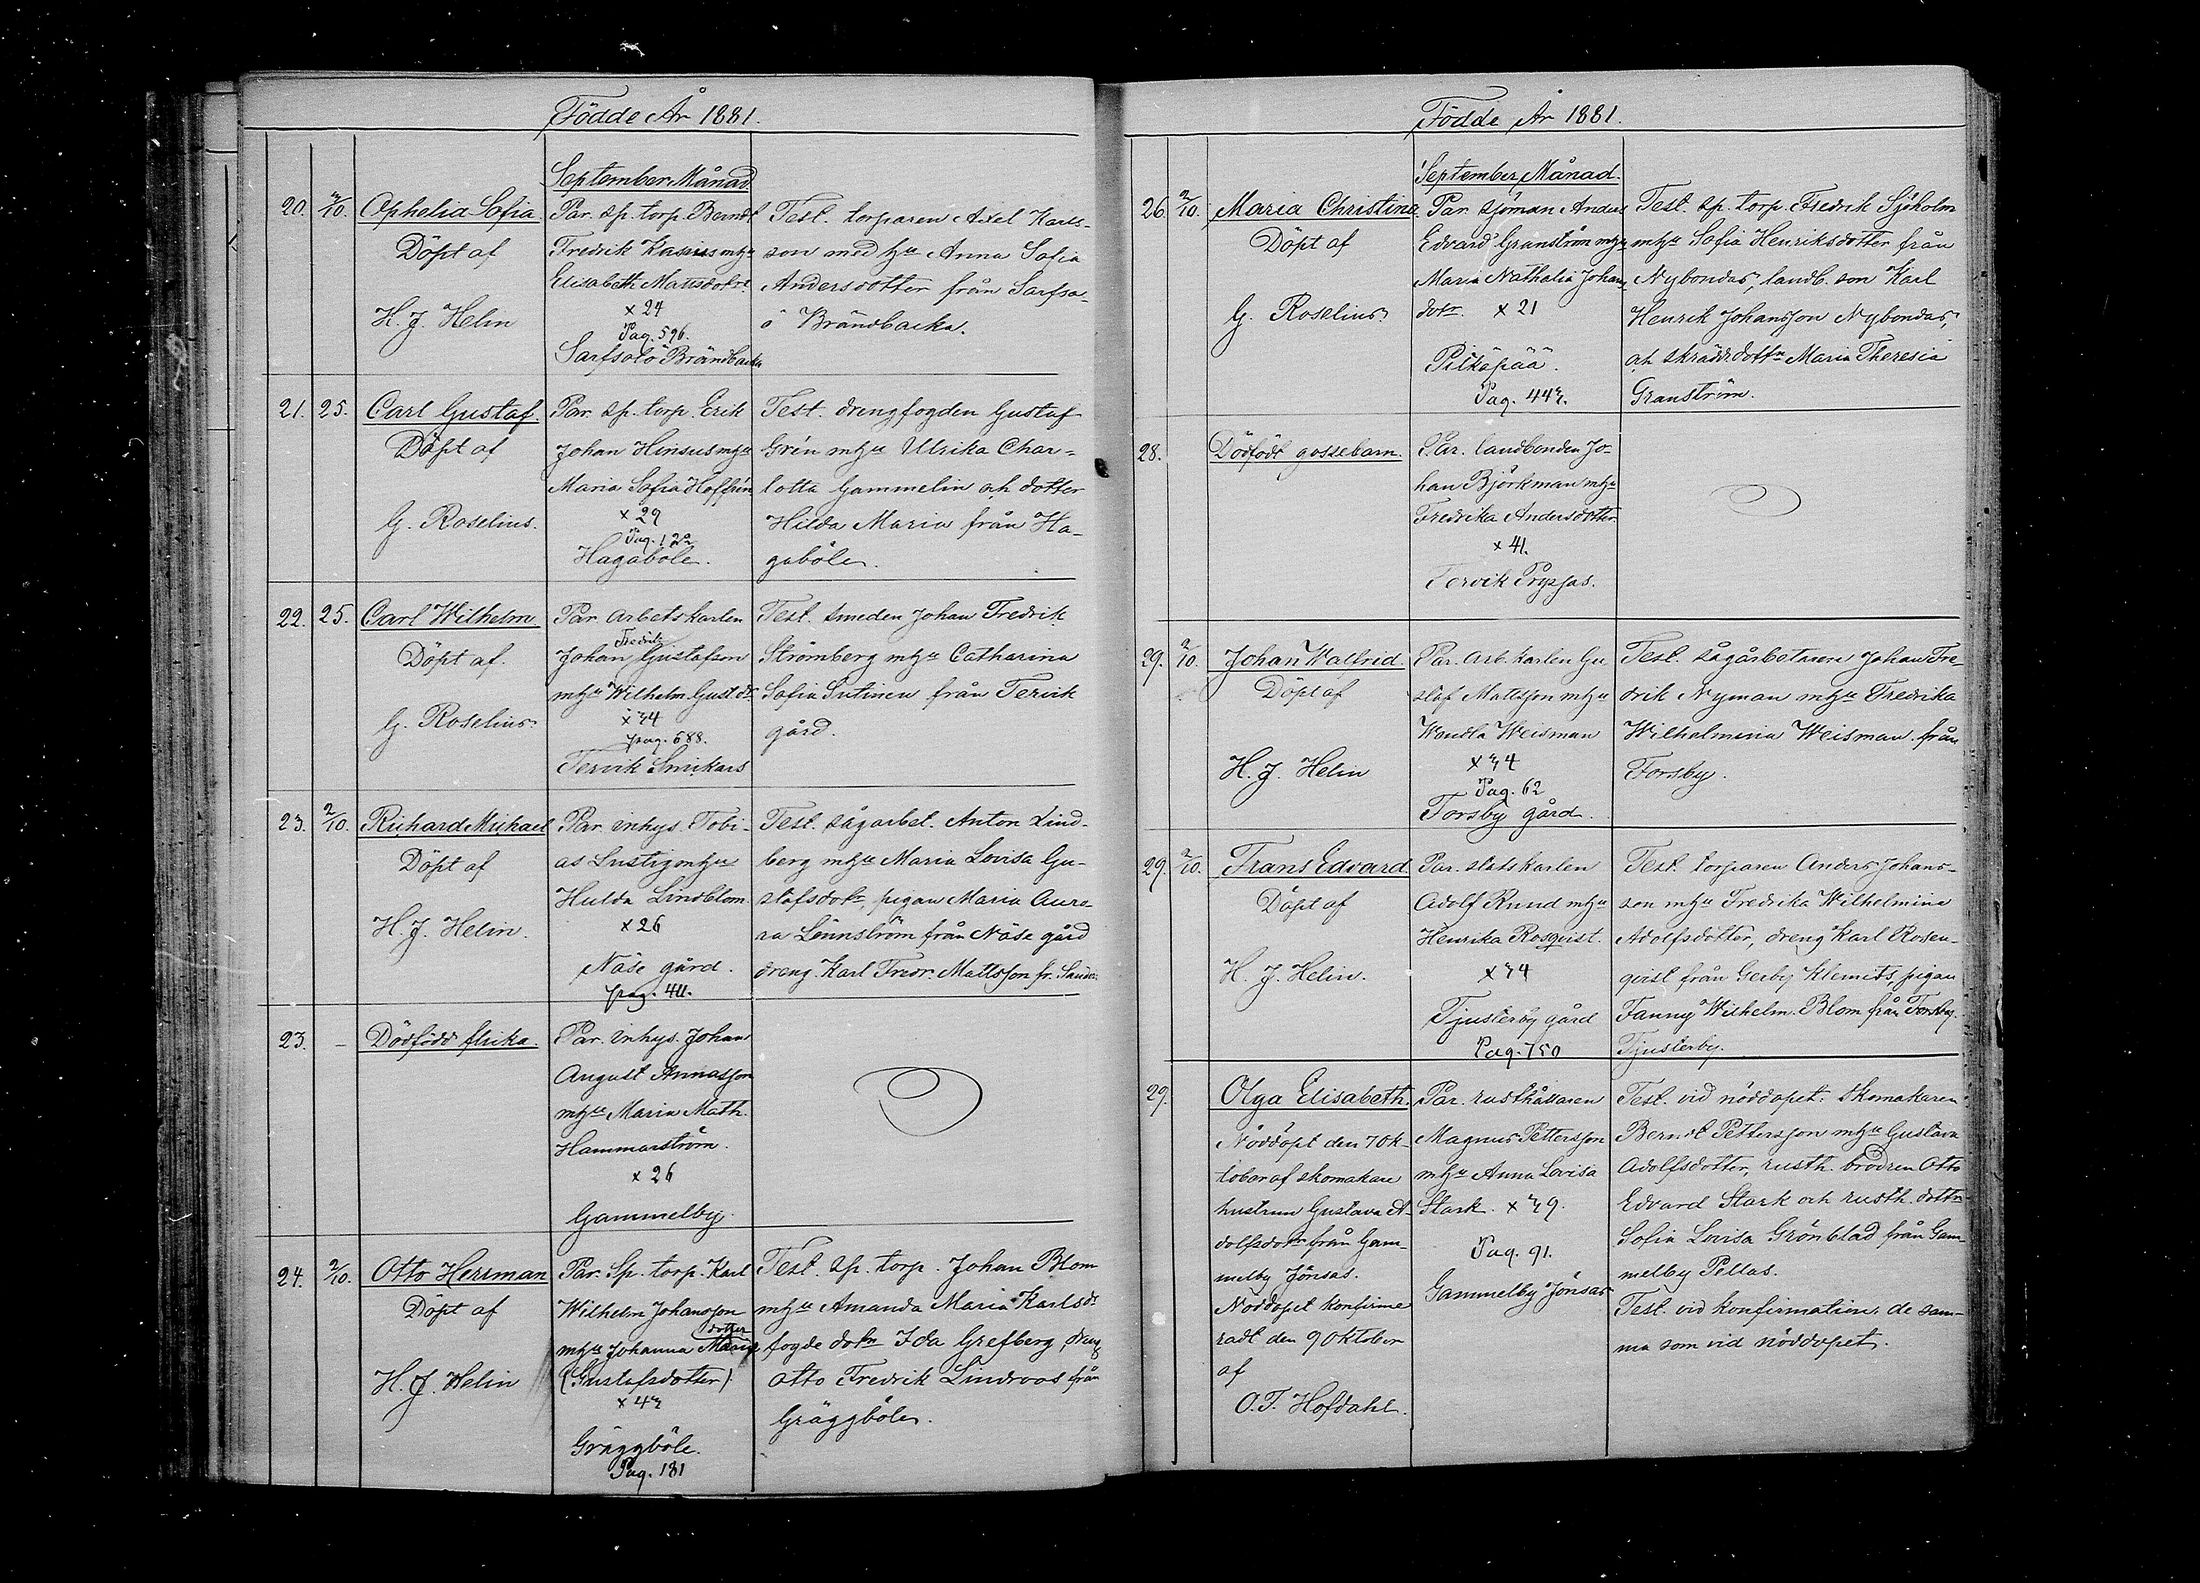 Födde År 1881.
September Månad.
20. 2/10. Ophelia Sofia
Döpt af
H. J. Helin
Par. sp. torp. Berndt
Fredrik mhu
Elisabeth Mattsdotr.
x 24
Pag. 596.
Sarfsalö Brändbacka
Test. torparen Axel Karls-
son med hu Anna Sofia
Andersdotter från Sarfsa-
ö Brändbacka.
21. 25. Carl Gustaf.
Döpt af
G. Roselius.
Par. sp. torp. Erik
Johan Hinsus mhu
Maria Sofia Hoffrén
x 29
Pag. 122
Hagaböle.
Test. drengfogden Gustaf
Grén mhu Ulrika Char-
lotta Gammelin och dotter
Hilda Maria från Ha-
gaböle.
22. 25. Carl Wilhelm
Döpt af.
G. Roselius.
Par. arbetskarlen
Fredrik
Johan Gustafson
mhu Wilhelm. Gustdr.
x 34
pag. 688.
Tervik Smikars
Test. smeden Johan Fredrik
Strömberg mhu Catharina
Sofia Sutinen från Tervik
gård.
23. 2/10. Richard Mikael
Döpt af
H. J. Helin.
Par. inhys. Tobi-
as Lustig mhu
Hulda Lindblom
x 26
Näse gård.
pag. 411.
Test. sågarbet. Anton Lind-
berg mhu Maria Lovisa Gu-
stafsdotr, pigan Maria Auro-
ra Lönnström från Näse gård
dreng. Karl Fredr. Mattsson fr.
23. – Dödfödd flicka.
Par. inhys. Johan
August Annasson
mhu Maria Math.
Hammarström.
x 26
Gammelby.
24. 2/10. Otto Herman
Döpt af
H. J. Helin
Par. Sp. torp. Karl
Wilhelm Johansson
dotter
mhu Johanna Maria
(Gustafsdotter)
x 43
Gräggböle.
Pag. 181
Test. sp. torp. Johan Blom
mhu Amanda Maria Karlsdr
fogde dotr Ida Grefberg, dreng
Otto Fredrik Lindroos från
Gräggböle.
Födde År 1881.
September Månad.
26 2/10. Maria Christina
Döpt af
G. Roselius
Par. sjöman Anders
Edvard Granström mhu
Maria Nathalia Johans
dotr. x 21
Pitkäpää.
Pag. 443.
Test. sp. torp. Fredrik Sjöholm
mhu Sofia Henriksdotter från
Nybondas, landb. son Karl
Henrik Johansson Nybondas,
och skrädd. dottn Maria Theresia
Granström.
28. Dödfödt gossebarn.
Par. landbonden Jo-
han Björkman mhu
Fredrika Andersdotter
x 41.
Tervik
29. 2/10. Johan Walfrid.
Döpt af
H. J. Helin
Par. arb. karlen Gu-
staf Mattsson mhu
Wendla Weisman
x 34
Pag. 62
Forsby gård.
Test. sågarbetaren Johan Fre-
drik Nyman mhu Fredrika
Wilhelmina Weisman från
Forsby.
29. 2/10. Frans Edvard
Döpt af
H. J. Helin.
Par. statskarlen
Adolf Rund mhu
Henrika Rosqvist.
x 34
Tjusterby gård
Pag. 750
Test. torparen Anders Johans-
son mhu Fredrika Wilhelmina
Adolfsdotter, dreng Karl Rosen-
qvist från Gerby Klemets, pigan
Fanny Wilhelm. Blom från Forsby.
Tjusterby.
29. Olga Elisabeth.
Nöddöpt den 7 Ok-
tober af skomakare
hustrun Gustava A-
dolfsdotr från Gam-
melby Jönsas.
Nöddopet konfirme
radt den 9 Oktober
af
O. T. Hofdahl.
Par. rusthållaren
Magnus Pettersson
mhu Anna Lovisa
Stark. x 39.
Pag. 91.
Gammelby Jönsas
Test. vid nöddopet: skomakaren
Berndt Pettersson mhu Gustava
Adolfsdotter, rusth. brodren Otto
Edvard Stark och rusth. dottn
Sofia Lovisa Grönblad från Gam
melby Pellas.
Test. vid konfirmation: de sam-
ma som vid nöddopet.